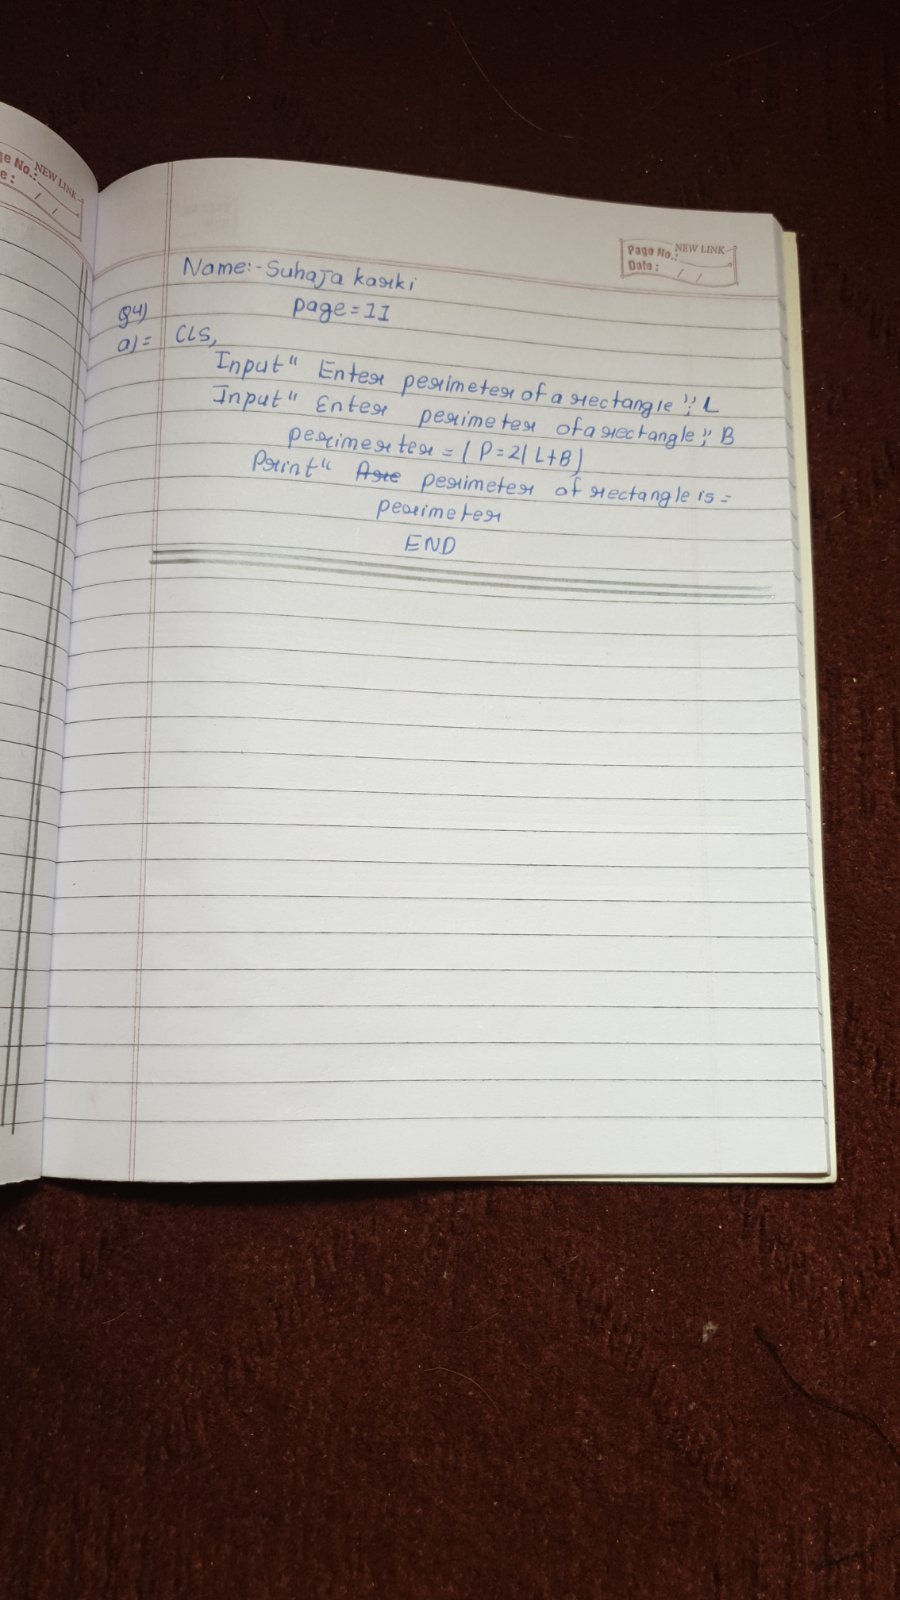 ge No.: NEW LINK
e : / /
Page No.: NEW LINK
Date : / /
Name:- Suhaja karki
page = 11
Q4)
a) = CLS,
Input " Enter perimeter of a rectangle "; L
Input " Enter perimeter of a rectangle; " B
perimerter = ( P = 2( L+B )
Print " Are perimeter of rectangle is =
perimeter
END